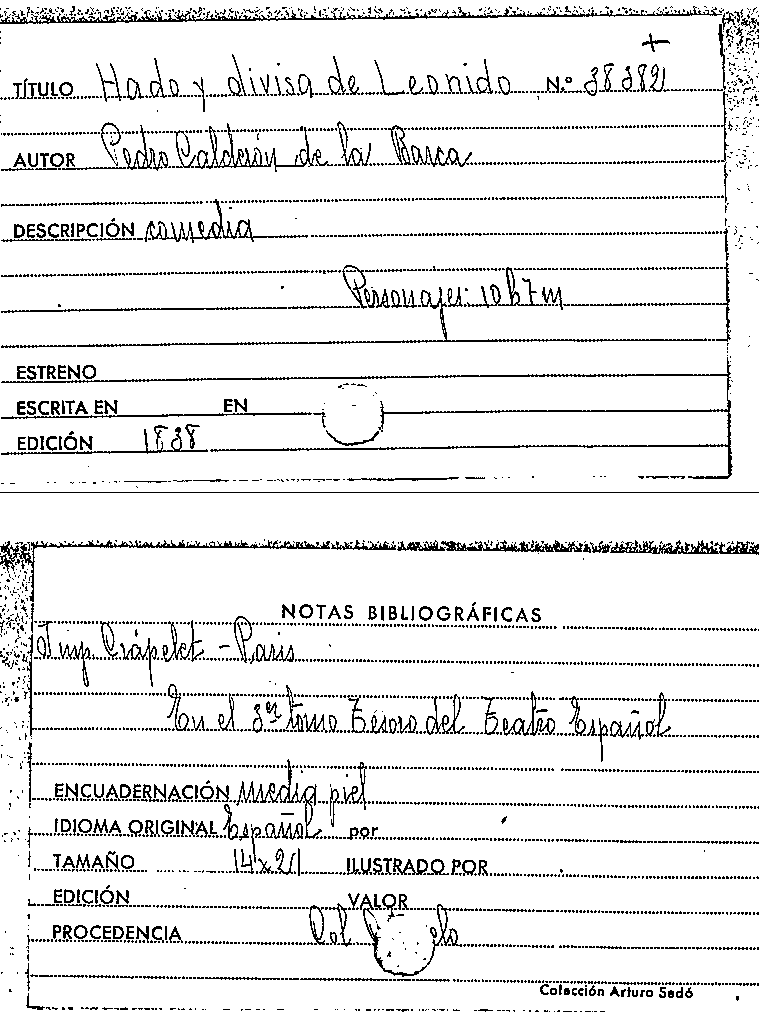 +
TÍTULO Hado y divisa de Leonido N.º 38382
AUTOR Pedro Calderón de la Barca
DESCRIPCIÓN comedia
Personajes: 10 h 7 m
ESTRENO
ESCRITA EN EN
EDICIÓN 1838
NOTAS BIBLIOGRÁFICAS
Imp. Crápelet - Paris
En el 3er tomo Tesoro del Teatro Español
ENCUADERNACIÓN media piel
IDIOMA ORIGINAL Español por
TAMAÑO 14x21 ILUSTRADO POR
EDICIÓN VALOR
PROCEDENCIA Col
Colección Arturo Sedó